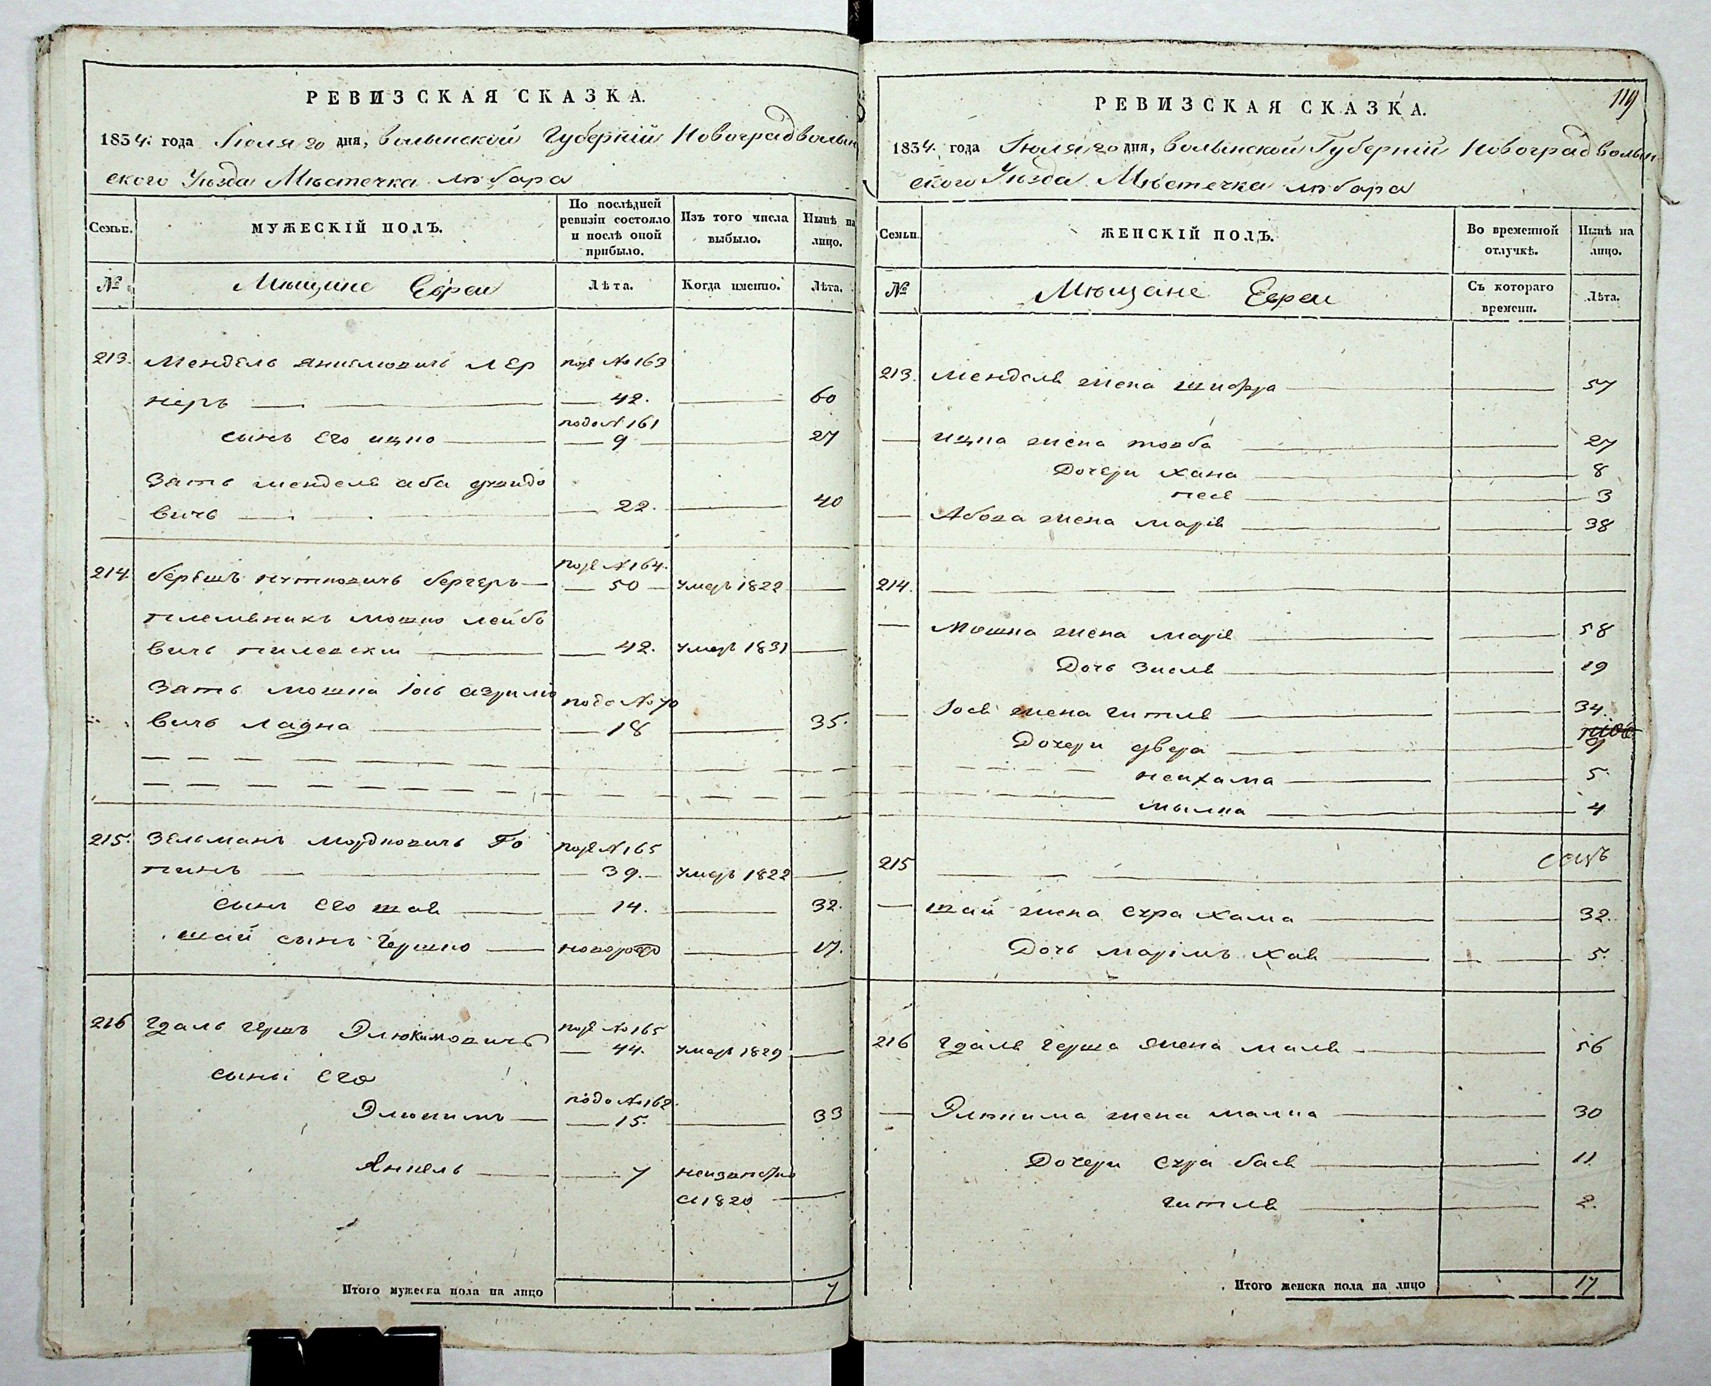 РЕВИЗСКАЯ СКАЗКА.
1834. года Іюля 20 дня, Волынской Губерніи Новоградволын
ского Уѣзда Мѣстечка Любара
Семьи.
МУЖЕСКІЙ ПОЛЪ.
По послѣдней ревизіи состояло и послѣ оной прибыло.
Изъ того числа выбыло.
Нынѣ на лицо.
№
Мѣщане Евреи
Лѣта.
Когда именно.
Лѣта.
213. Мендель Янкелювичъ Лер подъ №163
неръ 42. 60
сынъ его ицко подъ №161 9 27
Зять менделя аба
вичъ 22. 40
214. берешъ берчеръ подъ №164. 50 умеръ 1822
племянникъ мошко лейбо
вичъ 42. умеръ 1831
Зять мошка Іось азрилио подъ №70
вичъ ладна 18 35.
215. Зельманъ мордковичъ Го подъ №165
пинъ 39. умеръ 1822
сынъ его шая 14. 32.
шаи сынъ Гершко новорож 17.
216 Гдаль Гершъ Элюкимовичъ подъ №165 44. умеръ 1829
сыны его
Элюкимъ подъ №162. 15. 33
Янкель 7
съ 1820
Итого мужеска пола на лицо 7
119
РЕВИЗСКАЯ СКАЗКА.
1834. года Іюля 20 дня, Волынской Губерніи Новоградволын
ского Уѣзда Мѣстечка Любара
Семьи.
ЖЕНСКІЙ ПОЛЪ.
Во временной отлучкѣ.
Нынѣ на лицо.
№
Мѣщане Евреи
Съ котораго времени.
Лѣта.
213. Менделя жена шифра 57
ицка жена товба 27
Дочери хана 8
песя 3
Абова жена марія 38
214.
Мошка жена марія 58
Дочь зисля 19
Іося жена гитля 34.
Дочери двера 9
нехама 5.
малка 4
215
шаи жена сура хама 32.
Дочь марімъ хая 5.
216 Гдаля Герша жена маля 56
Элюкима жена малка 30
Дочери сура бася 11
гитля 2.
Итого женска пола на лицо 17